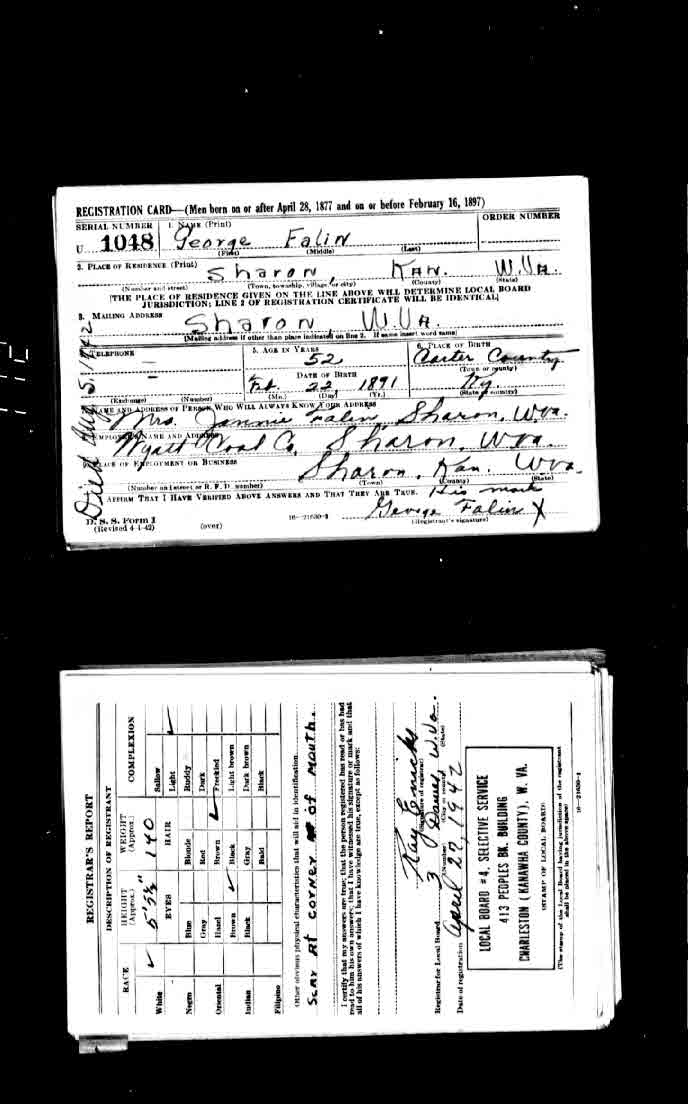 REGISTRATION CARD—(Men born on or after April 28, 1877 and on or before February 16, 1897)
SERIAL NUMBER 1. NAME (Print) ORDER NUMBER
U 1048 George Falin
(First) (Middle) (Last)
2. PLACE OF RESIDENCE (Print)
Sharon, Kan. W.Va.
(Number and street) (Town, township, village, or city) (County) (State)
[THE PLACE OF RESIDENCE GIVEN ON THE LINE ABOVE WILL DETERMINE LOCAL BOARD
JURISDICTION; LINE 2 OF REGISTRATION CERTIFICATE WILL BE IDENTICAL]
3. MAILING ADDRESS
Sharon, W.Va.
[Mailing address if other than place indicated on line 2. If same insert word same]
TELEPHONE 5. AGE IN YEARS 6. PLACE OF BIRTH
52 Carter County
DATE OF BIRTH (Town or county)
Feb. 22, 1891 Ky.
(Exchange) (Number) (Mo.) (Day) (Yr.) (State or country)
NAME AND ADDRESS OF PERSON WHO WILL ALWAYS KNOW YOUR ADDRESS
Mrs. Jannie Falin, Sharon, W.Va.
EMPLOYER'S NAME AND ADDRESS
Wyatt Coal Co. Sharon, W.Va.
PLACE OF EMPLOYMENT OR BUSINESS
Sharon, Kan. W.Va.
(Number and street or R. F. D. number) (Town) (County) (State)
I AFFIRM THAT I HAVE VERIFIED ABOVE ANSWERS AND THAT THEY ARE TRUE. His mark
D. S. S. Form 1 George Falin X
(Revised 4-1-42) (over) 16—21630-1 (Registrant's signature)
Died Aug 5, 1942
REGISTRAR'S REPORT
DESCRIPTION OF REGISTRANT
RACE HEIGHT (Approx.) WEIGHT (Approx.) COMPLEXION
5' 5½" 140
EYES HAIR
White ✓ Sallow
Light ✓
Negro Blue Blonde Ruddy
Gray Red Dark
Oriental Hazel Brown ✓ Freckled
Brown ✓ Black Light brown
Indian Black Gray Dark brown
Bald Black
Filipino
Other obvious physical characteristics that will aid in identification
Scar Rt corner of mouth.
I certify that my answers are true; that the person registered has read or has had
read to him his own answers; that I have witnessed his signature or mark and that
all of his answers of which I have knowledge are true, except as follows:
Kay Emicks
(Signature of registrar)
Registrar for Local Board 3 W.Va.
(Number) (City or county) (State)
Date of registration April 27, 1942
LOCAL BOARD #4, SELECTIVE SERVICE
413 PEOPLES BK. BUILDING
CHARLESTON (KANAWHA COUNTY), W. VA.
(STAMP OF LOCAL BOARD)
(The stamp of the Local Board having jurisdiction of the registrant
shall be placed in the above space)
16—21630-1